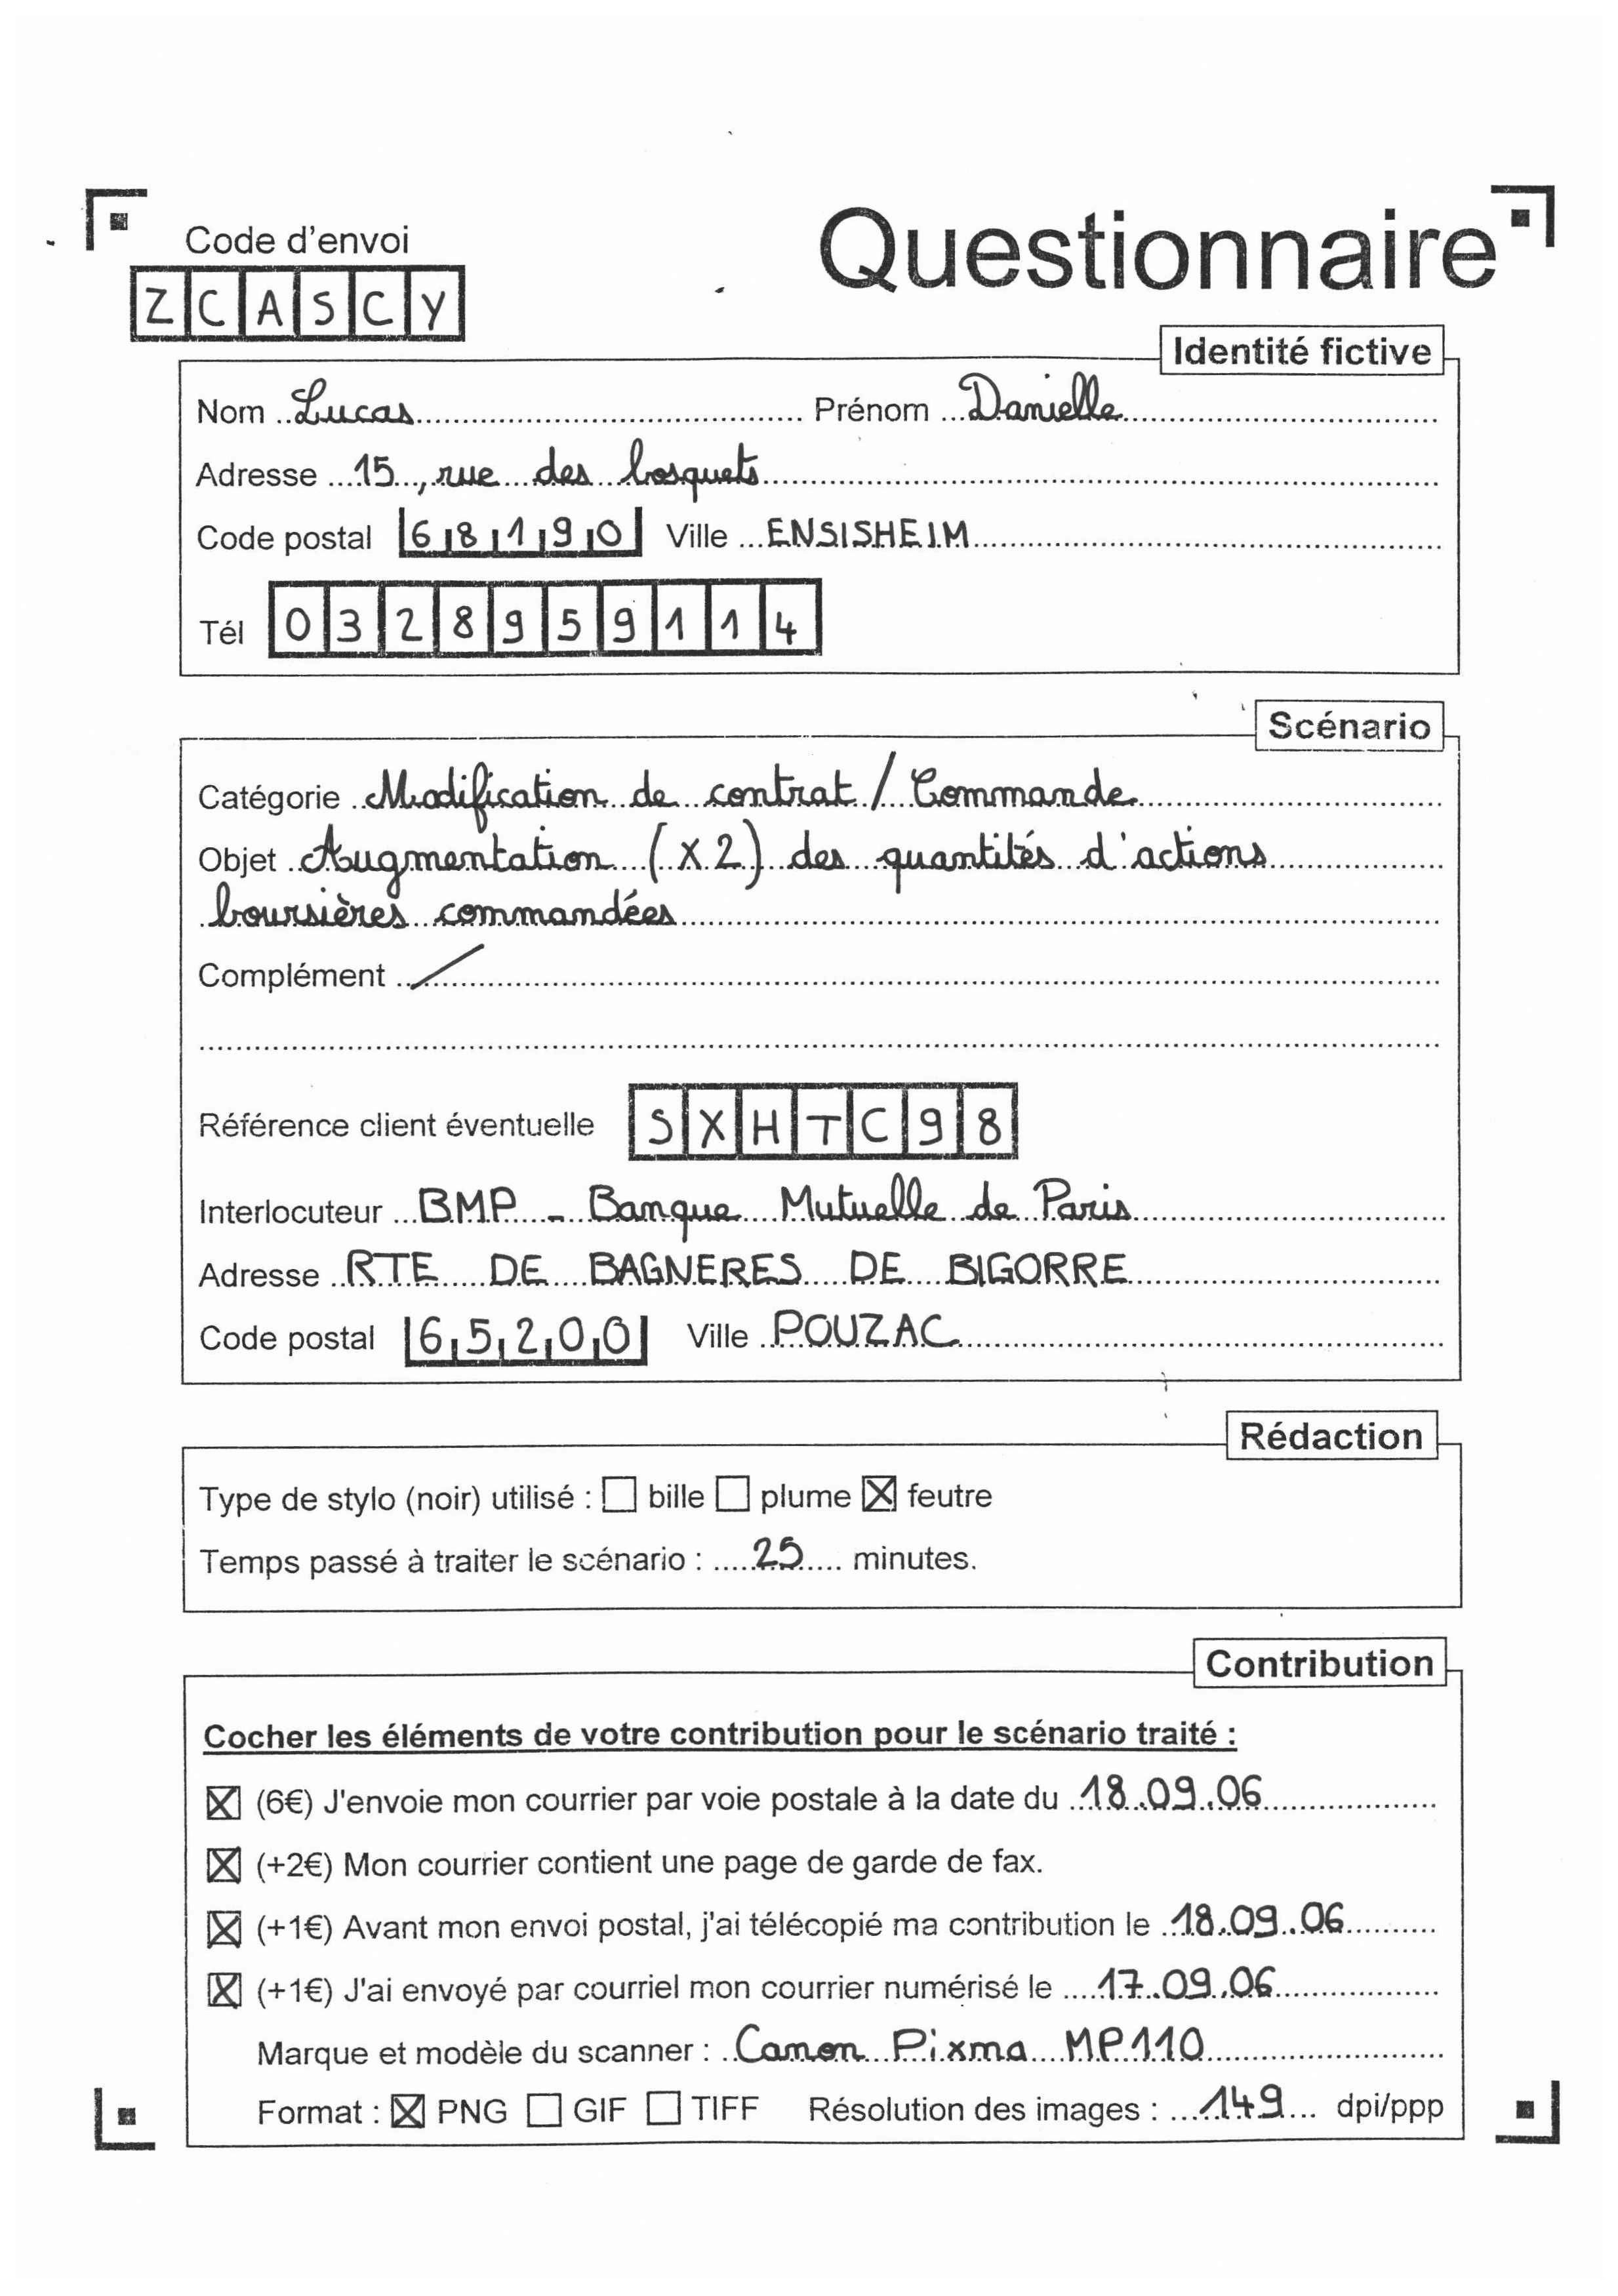 Code d'envoi
Questionnaire
ZCASCY
Identité fictive
Nom Lucas Prénom Danielle
Adresse 15, rue des bosquets
Code postal 68190 Ville ENSISHEIM
Tél 0328959114
Scénario
Catégorie Modification de contrat / Commande
Objet Augmentation (x2) des quantités d'actions
boursières commandées
Complément /
Référence client éventuelle SXHTC98
Interlocuteur BMP - Banque Mutuelle de Paris
Adresse RTE DE BAGNERES DE BIGORRE
Code postal 65200 Ville POUZAC
Rédaction
Type de stylo (noir) utilisé : ☐ bille ☐ plume ☒ feutre
Temps passé à traiter le scénario : 25 minutes.
Contribution
Cocher les éléments de votre contribution pour le scénario traité :
☒ (6€) J'envoie mon courrier par voie postale à la date du 18.09.06
☒ (+2€) Mon courrier contient une page de garde de fax.
☒ (+1€) Avant mon envoi postal, j'ai télécopié ma contribution le 18.09.06
☒ (+1€) J'ai envoyé par courriel mon courrier numérisé le 17.09.06
Marque et modèle du scanner : Canon Pixma MP110
Format : ☒ PNG ☐ GIF ☐ TIFF Résolution des images : 149 dpi/ppp